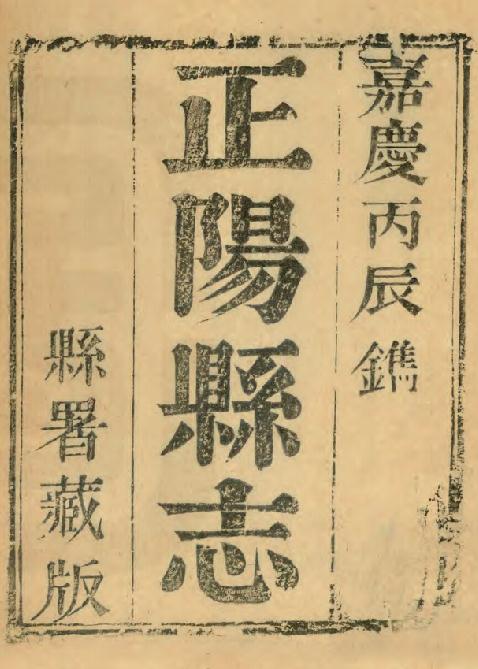 嘉慶丙辰鐫
正陽縣志
縣署藏版